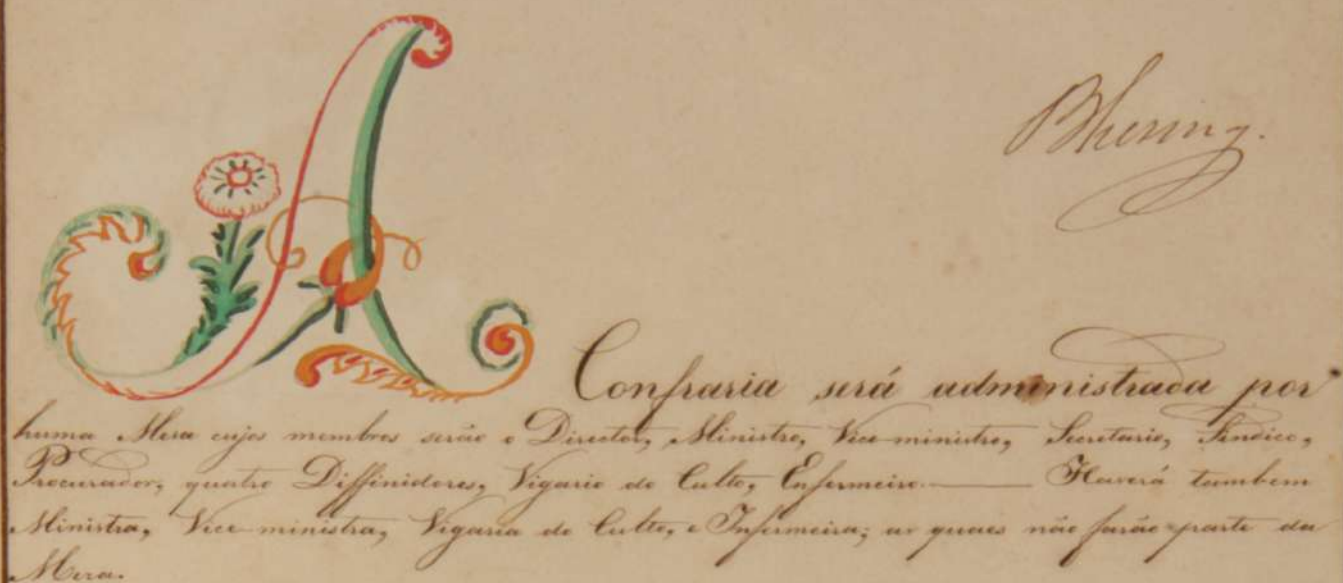 Bhering.
A Confraria será administrada por
huma Mesa cujos membros serão o Director, Ministro, Vice-ministro, Secretario, Sindico,
Procurador, quatro Diffinidores, Vigario do Culto, Enfermeiro.— Haverá tambem
Ministra, Vice-ministra, Vigaria do Culto, e Infermeira; as quaes não farão parte da
Mesa.